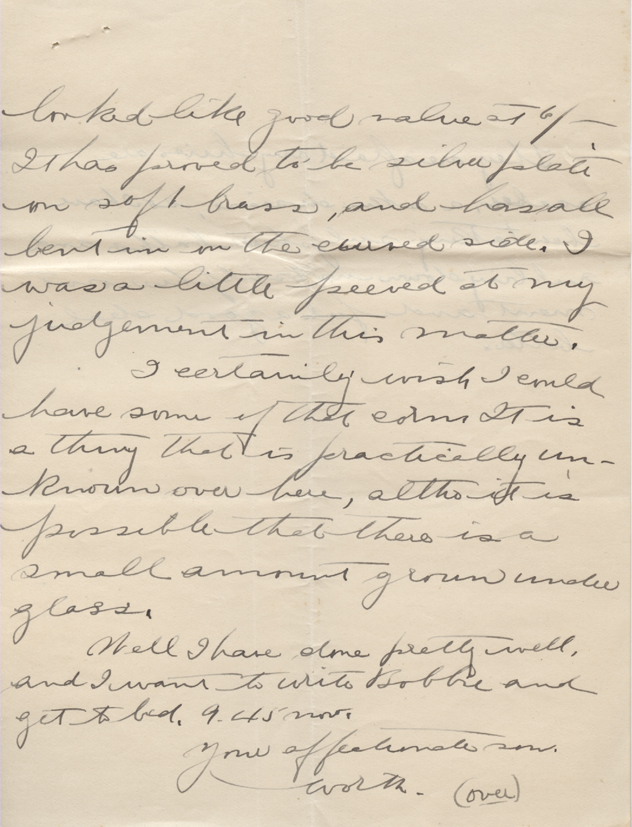 looked like good value at 6/-
It has proved to be silver plate
on soft brass, and has all
bent in on the curved side. I
was a little peeved at my
judgement in this matter.
I certainly wish I could
have some of that corn It is
a thing that is practically un-
known over here, altho it is
possible that there is a
small amount grown under
glass.
Well I have done pretty well,
and I want to write Bobbie and
get to bed. 9.45 now.
Your affectionate son.
Worth. (over)